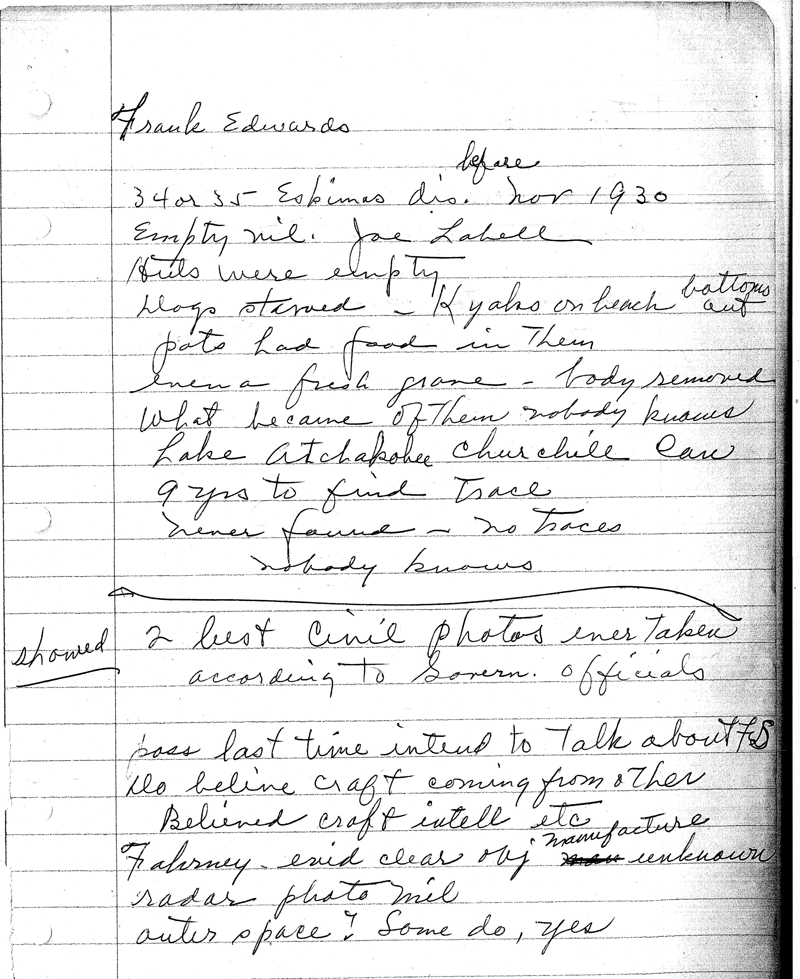 Frank Edwards
before
34 or 35 Eskimos dis. Nov 1930
Empty vil. Joe Labell
Huts were empty
Dogs starved - Kyaks on beach bottoms out
pots had food in them
even a fresh grave - body removed
What became of them nobody knows
Lake Atchakohee Churchill Can
9 yrs to find trace
never found - no traces
nobody knows
showed 2 best Civil photos ever taken
according to Govern. officials
poss last time intend to talk about FS
Do belive craft coming from other
Believed craft intell etc
Fahrney - evid clear obj manufacture unknown
radar photo mil
outer space? Some do, yes